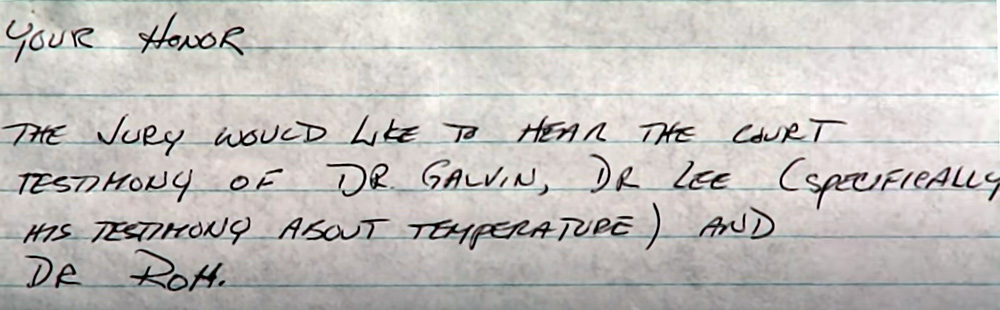 YOUR HONOR
THE JURY WOULD LIKE TO HEAR THE COURT
TESTIMONY OF DR. GALVIN, DR LEE (SPECIFICALLY
HIS TESTIMONY ABOUT TEMPERATURE) AND
DR ROH.